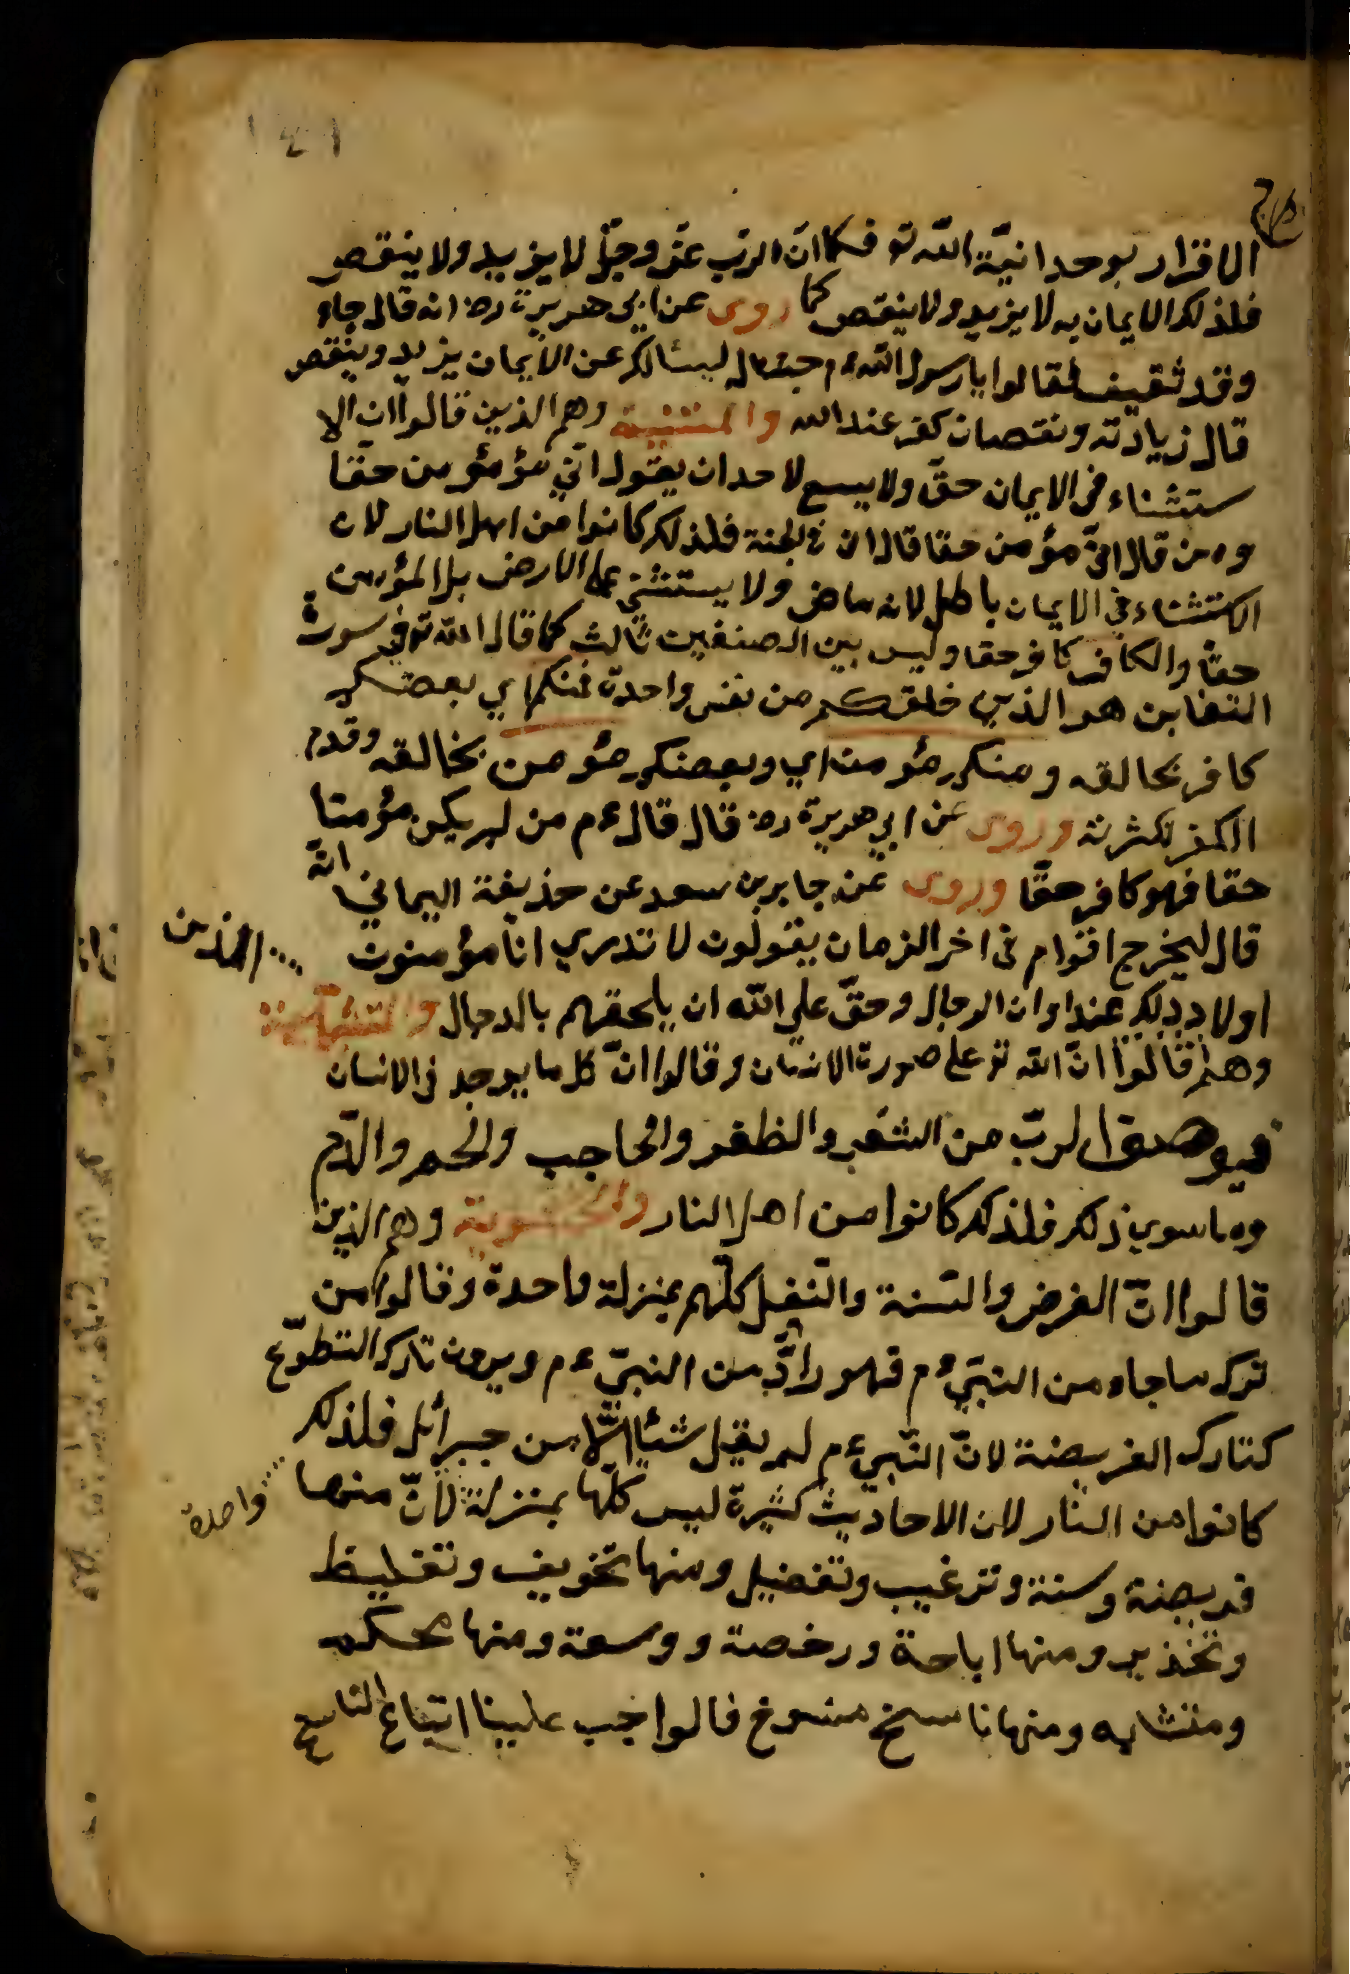 ١٤١
الاقرار بوحدانيّة اللّه تو فكما انّ الرّب عزّ وجلّ لا يزيد ولا ينقص
فلذلك الايمان به لا يزيد ولا ينقص كما روى عن ابي هريرة رضه انه قال جاء
وفد ثقيف فقالوا يا رسول اللّه ءم جئنا لنسالك عن الايمان يزيد وينقص
قال زيادته ونقصان كفر عند الله والمستثنية وهم الذين قالوا ان الا
ستثناء في الايمان حقّ ولا يسع لاحد ان يقول انّي مؤمن حقّا
ومن قال انّي مؤمن حقا قال ان في الجنة فلذلك كانوا من اهل النار لان
الاستثناء في الايمان باطل لانه ماض ولا يستثنى على الارض بل المؤمن
حقّا والكافر كافر حقا وليس بين الصنفين ثالث كما قال اللّه تو في سورة
التغابن هو الذي خلقكم من نفس واحدة فمنكم اي بعضكم
كافر بخالقه ومنكم مؤمن اي وبعضكم مؤمن بخالقه وقدم
الكفر لكثرته وروى عن ابي هريرة رضه قال قال ءم من لم يكن مؤمنا
حقا فهو كافر حقّا وروى عن جابر بن سعد عن حذيفة اليماني انّه
قال ليخرج اقوام في اخر الزمان يقولون لا ندري انا مؤمنون
الذين
اولا وحقّ على اللّه ان يلحقهم بالدجال
وهم قالوا انّ اللّه تو على صورة الانسان وقالوا انّ كل ما يوجد في الانسان
الربّ من الشعر والظفر والحاجب واللحم والدّم
وما سوى ذلك فلذلك كانوا من اهل النار والحشوية وهم الذين
قالوا انّ الفرض والسّنة والنّفل كلّهم بمنزلة واحدة وقالوا من
ترك ما جاء من النبيّ ءم فهو رادّ من النبيّ ءم ويرون تارك التطوّع
كتارك الفريضة لانّ النّبي ءم لم يقل شئا الّا من جبرائل فلذلك
كانوا من النار لان الاحاديث كثيرة ليس كلّها بمنزلة لانّ منها
واحدة
فريضة وسنة وترغيب وتفضيل ومنها تخويف وتغليظ
وتحذير ومنها اباحة ورخصة ووسعة ومنها محكم
ومتشابه ومنها ناسخ منسوخ قالوا جب علينا اتباع الناسخ